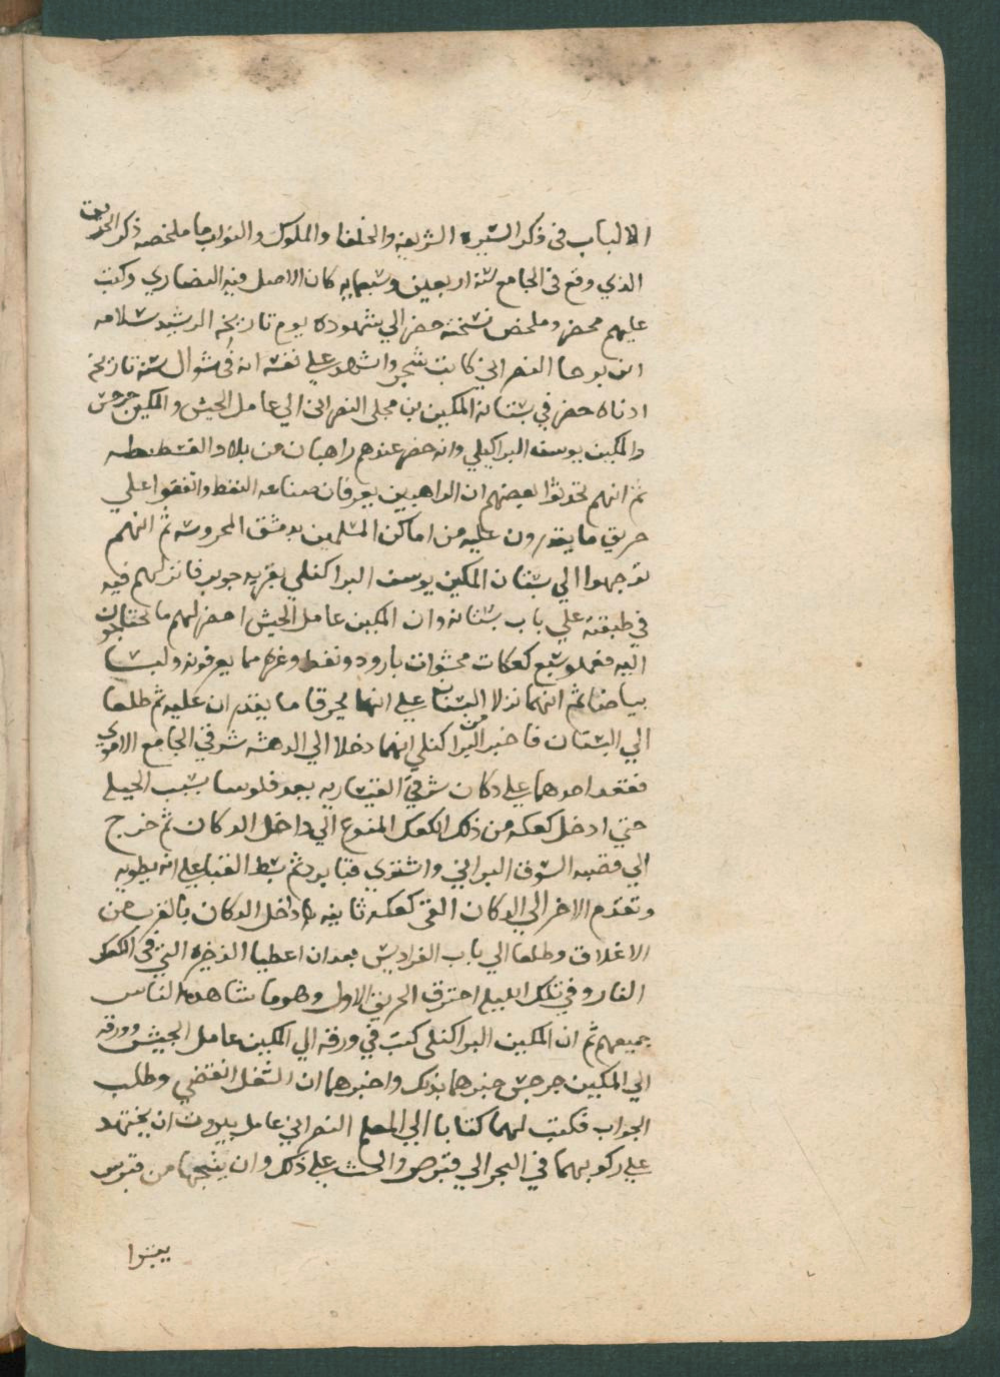 الالباب في ذكر السيره الشريفه والخلفا والملوك والنواب ما ملخصه ذكر الحريق
الذي وقع في الجامع سنة اربعين وسبعمايه كان الاصل فيه النصاري وكتب
عليهم محضر وملخص نسخته حضر الي شهوده يوم تاريخه الرشيد سلامه
ابن النصراني كاتب سنجر واشهد علي نفسه انه في شوال سنة تاريخه
ادناه حضر في بستانه المكين بن مجلي النصراني الي عامل الجيش والمكين جرجس
والمكين يوسف وانه حضر عندهم راهبان من بلاد
ثم انهم تحدثوا بعضهم ان الراهبين يعرفان صناعه النفط واتفقوا علي
حريق ما يقدرون عليه من اماكن المسلمين بدمشق المحروسه ثم انهم
توجهوا الي بستان المكين يوسف البراكنلي بقريه جوبر فانزلهم فيه
في طبقته علي باب بستانه وان المكين عامل الجيش احضر لهم ما يحتاجون
اليه فعملو سبع كعكات محشوات بارود ونفط وغيره مما يعرفونه ولبسا
بياضا ثم انهما نزلا البستان علي انهما يحرقا ما يقدران عليه ثم طلعا
الي البستان فاخبر البراكنلي انهما دخلا الي الدهشه شرقي الجامع الاموي
فقعد احدهما علي دكان شرقي القيساريه بعد فلوسا بسبب الحيله
حتي ادخل كعكه من ذلك الكعك المنوع الي داخل الدكان ثم خرج
الي قصبه السوق البراني واشتري قبا برد ثم بسط القبا علي انه يطويه
وتقدم الاخر الي الدكان القي كعكه ثانيه داخل الدكان بالقرب من
الاغلاق وطلعا الي باب الفراديس بعد ان اعطيا الذخيره التي في الكعك
النار وفي تلك الليله احترق الحريق الاول وهو ما شاهده الناس
جميعهم ثم ان المكين البراكنلي كتب في ورقه الي المكين عامل الجيش وورقه
الي المكين جرجس خبرهما بذلك واخبرهما ان الشغل انقضي وطلب
الجواب فكتب لهما كتابا الي المعلم النصراني عامل بيروت ان يجتهد
علي ركوبهما في البحر الي قبرص والحث علي ذلك وان من قبرس